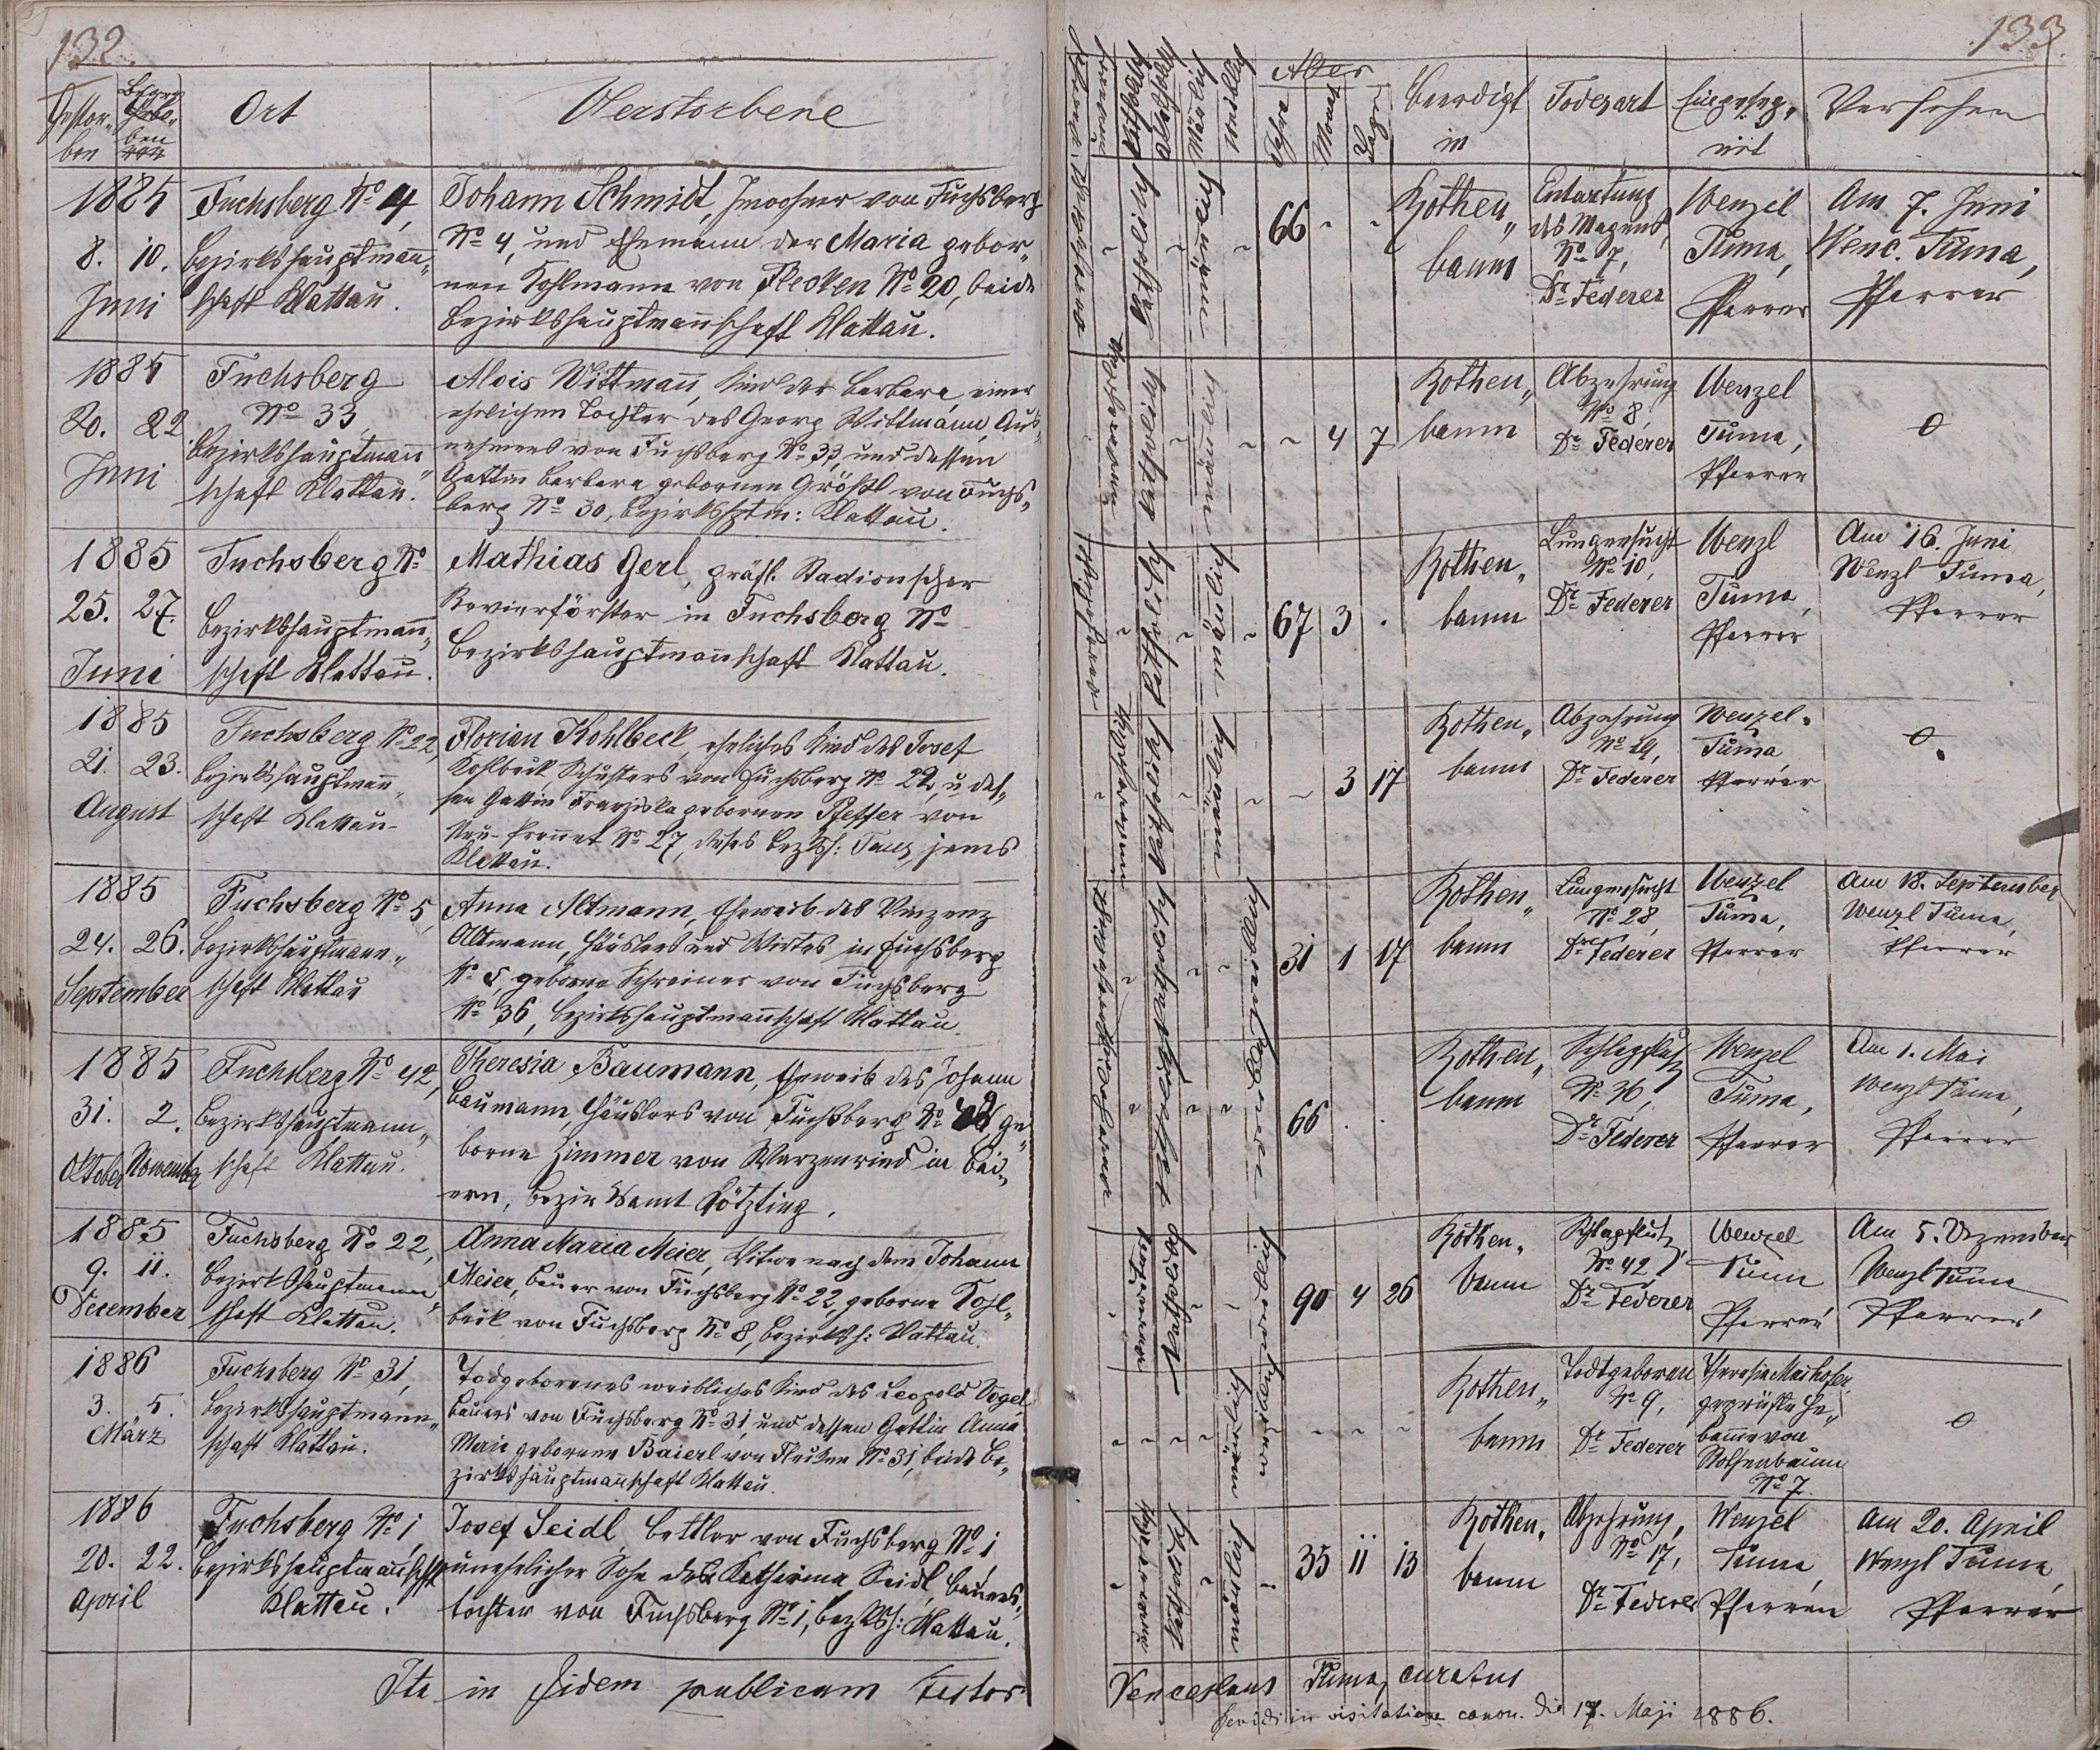 132.
Gestor-
ben
Begra-
ben
Ort
Verstorbene
1885
8. 10.
Juni
Fuchsberg No 4,
Bezirkshauptmann„
schaft Klattau.
Johann Schmidt, Inwohner von Fuchsberg
No 4, und Ehemann der Maria gebor„
nen Kohlmann von Flecken No 20, beide
Bezirkshauptmannschaft Klattau.
1885
20. 22
Juni
Fuchsberg
No 33
Bezirkshauptmann„
schaft Klattau.
Alois Wittmann, Kind der Barbara, einer
ehelichen Tochter des Georg Wittmann, Aus„
nehmers von Fuchsberg No 33, und dessen
Gattin Barbara gebornen Größl von Fuchs„
berg No 30, Bezirkshptm: Klattau.
1885
25. 27.
Juni
Fuchsberg No
Bezirkshauptmann„
schaft Klattau.
Mathias Gerl, gräfl. Stadionscher
Revierförster in Fuchsberg No
Bezirkshauptmannschaft Klattau.
1885
21. 23.
August
Fuchsberg No 22,
Bezirkshauptmann„
schaft Klattau
Florian Kohlbeck, eheliches Kind des Josef
Kohlbeck, Schusters von Fuchsberg No 22, u. des„
sen Gattin Franziska gebornen Pfeffer von
Neu-Prennet No 27, dieses Bezksh: Taus, jenes
Klattau.
1885
24. 26.
September
Fuchsberg No 5,
Bezirkshauptmann„
schaft Klattau
Anna Altmann, Eheweib des Vinzenz
Altmann, Häuslers und Wirtes in Fuchsberg
No 5, geborne Schreiner von Fuchsberg
No 36, Bezirkshauptmannschaft Klattau.
1885
31. 2.
Oktober November
Fuchsberg No 42,
Bezirkshauptmann„
schaft Klattau.
Theresia Baumann, Eheweib des Johann
Baumann, Häuslers von Fuchsberg No 42, ge„
borne Zimmer von Warzenried in Bai„
ern, Bezirksamt Kötzting.
1885
9. 11.
December
Fuchsberg No 22,
Bezirkshauptmann„
schaft Klattau.
Anna Maria Meier, Witwe nach dem Johann
Meier, Bauer von Fuchsberg No 22, geborne Kohl„
beck von Fuchsberg No 8, Bezirksh: Klattau.
1886
3. 5.
März
Fuchsberg No 31,
Bezirkshauptmann„
schaft Klattau.
Todgeborenes weibliches Kind des Leopold Vogel
Bauers von Fuchsberg No 31, und dessen Gattin Anna
Maria geborene Baierl von Flecken No 31, beide Be„
zirkshauptmannschaft Klattau.
1886
20. 22.
April
Fuchsberg No 1,
Bezirkshauptmannschft
Klattau.
Josef Seidl, Bettler von Fuchsberg No 1
unehelicher Sohn der Katharina Seidl, Bauers„
tochter von Fuchsberg No 1, Bezksh: Klattau.
Ita in fidem publicam testor
133.
Männlich
Weiblich
Alter
Jahre
Monat
Tage
Beerdigt
in
Todesart
Eingeseg„
nit
Versehen
katholisch
männlich
66
Rothen„
baum
Entartung
des Magens,
No 7,
Dr Federer
Wenzel
Tuma,
Pfarrer
Am 7. Juni
Wenc. Tuma,
Pfarrer
katholisch
männlich
4 7
Rothen„
baum
Abzehrung
No 8,
Dr Federer
Wenzel
Tuma,
Pfarrer
0
katholisch
männlich
67 3
Rothen„
baum
Lungensucht
No 10,
Dr Federer
Wenzl
Tuma,
Pfarrer
Am 16. Juni
Wenzl Tuma,
Pfarrer
katholisch
männlich
3 17
Rothen„
baum
Abzehrung
No 19,
Dr Federer
Wenzel
Tuma
Pfarrer
0
katholisch
31 1 17
Rothen„
baum
Lungensucht
No 28,
Dr Federer
Wenzel
Tuma,
Pfarrer
Am 18. September
Wenzl Tuma,
Pfarrer
katholisch
66
Rothen„
baum
Schlagfluß
No 36,
Dr Federer
Wenzel
Tuma,
Pfarrer
Am 1. Mai
Wenzl Tuma,
Pfarrer
katholisch
90 4 26
Rothen„
baum
Schlagfluß,
No 42,
Dr Federer
Wenzel
Tuma
Pfarrer
Am 5. Dezember
Wenzl Tuma
Pfarrer
Rothen„
baum
Todtgeboren
No 9,
Dr Federer
Theresia Maihofer,
geprüfte He„
bamme von
Rothenbaum
No 7.
0
katholisch
männlich
35 11 13
Rothen„
baum
Abzehrung,
No 17,
Dr Federer
Wenzel
Tuma,
Pfarrer
Am 20. April
Wenzl Tuma,
Pfarrer
Venceslaus Tuma, curatus
Revidi in visitatione canon. die 17. Maji 1886.